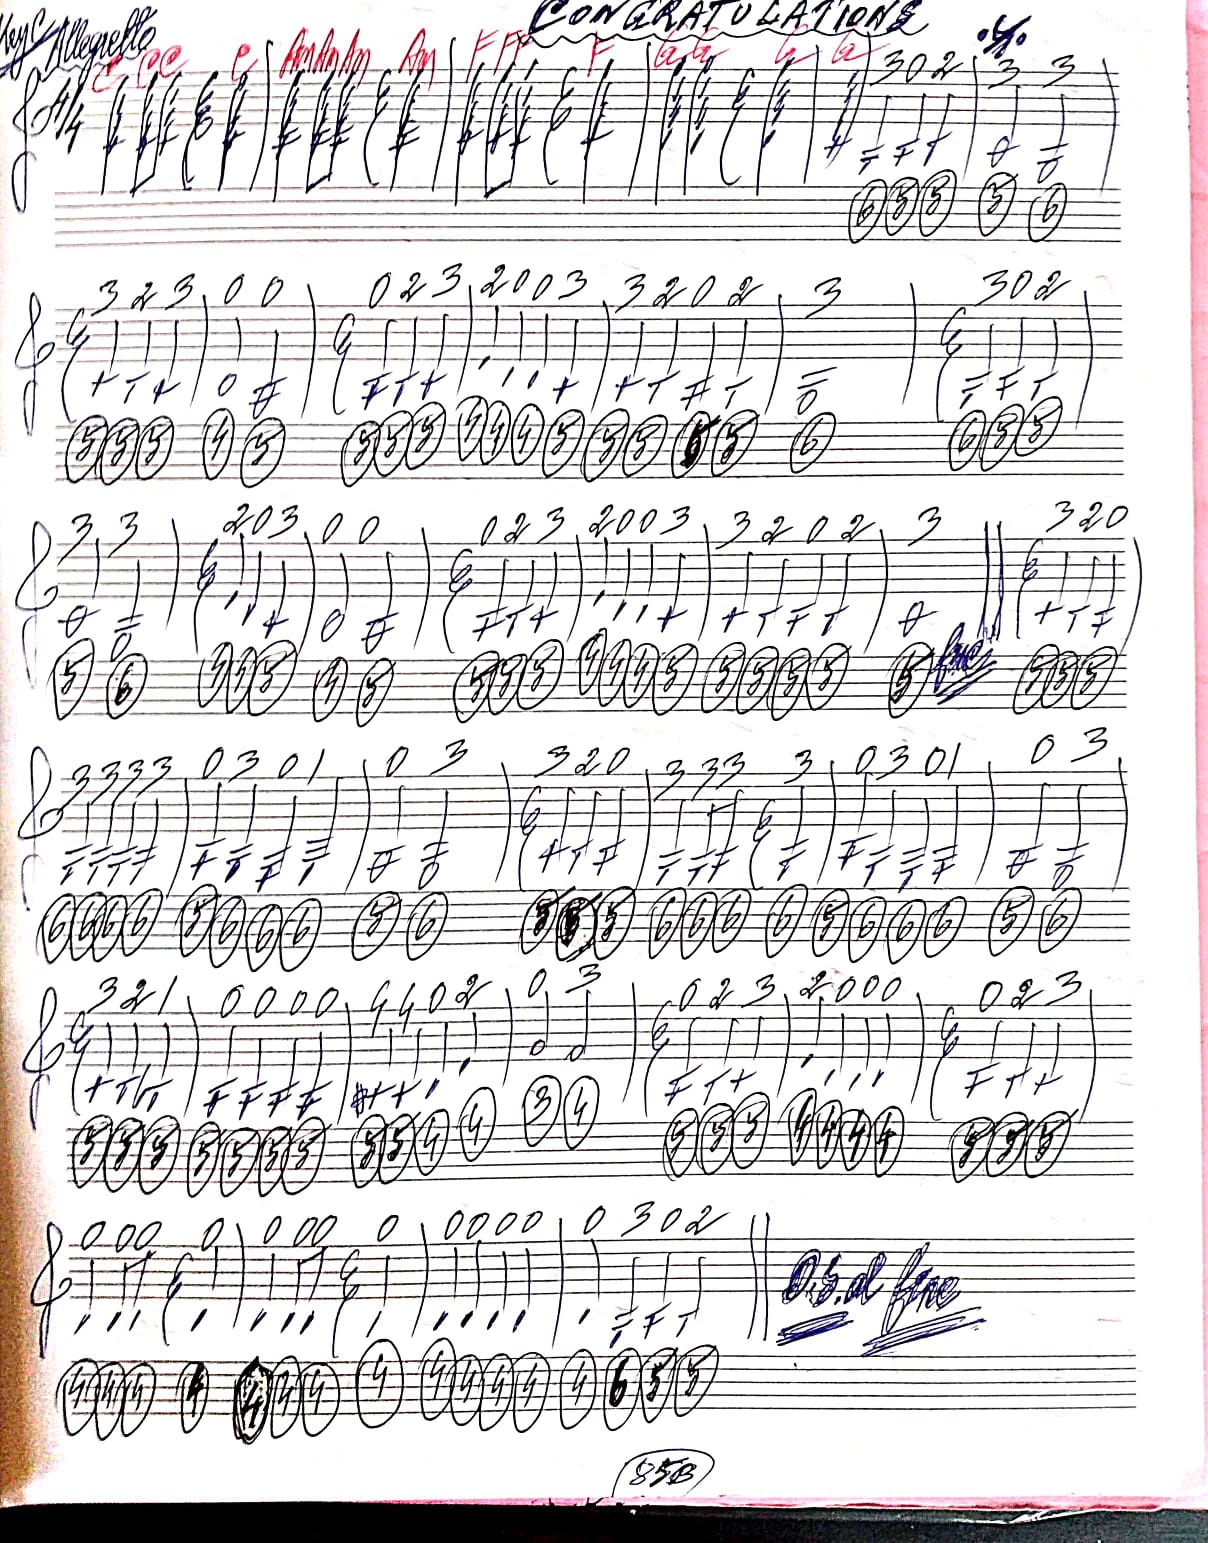 CONGRATULATIONS
Key C Allegretto
C CC C Am Am Am Am F F F F G G G G
4/4 3 0 2 3 3
6 5 5 5 6
3 2 3 0 0 0 2 3 2 0 0 3 3 2 0 2 3 3 0 2
5 5 5 4 5 5 5 5 4 4 4 5 5 5 5 5 6 6 5 5
3 3 2 0 3 0 0 0 2 3 2 0 0 3 3 2 0 2 3 3 2 0
5 6 4 4 5 4 5 5 5 5 4 4 4 5 5 5 5 5 5 fine 5 5 5
3 3 3 3 0 3 0 1 0 3 3 2 0 3 3 3 3 0 3 0 1 0 3
6 6 6 6 5 6 6 6 5 6 5 5 5 6 6 6 6 5 6 6 6 5 6
3 2 1 0 0 0 0 4 4 0 2 0 3 0 2 3 2 0 0 0 0 2 3
5 5 5 5 5 5 5 5 5 4 4 3 4 5 5 5 4 4 4 4 5 5 5
0 0 0 0 0 0 0 0 0 0 0 0 0 3 0 2
D.S. al fine
4 4 4 4 4 4 4 4 4 4 4 4 4 6 5 5
85B